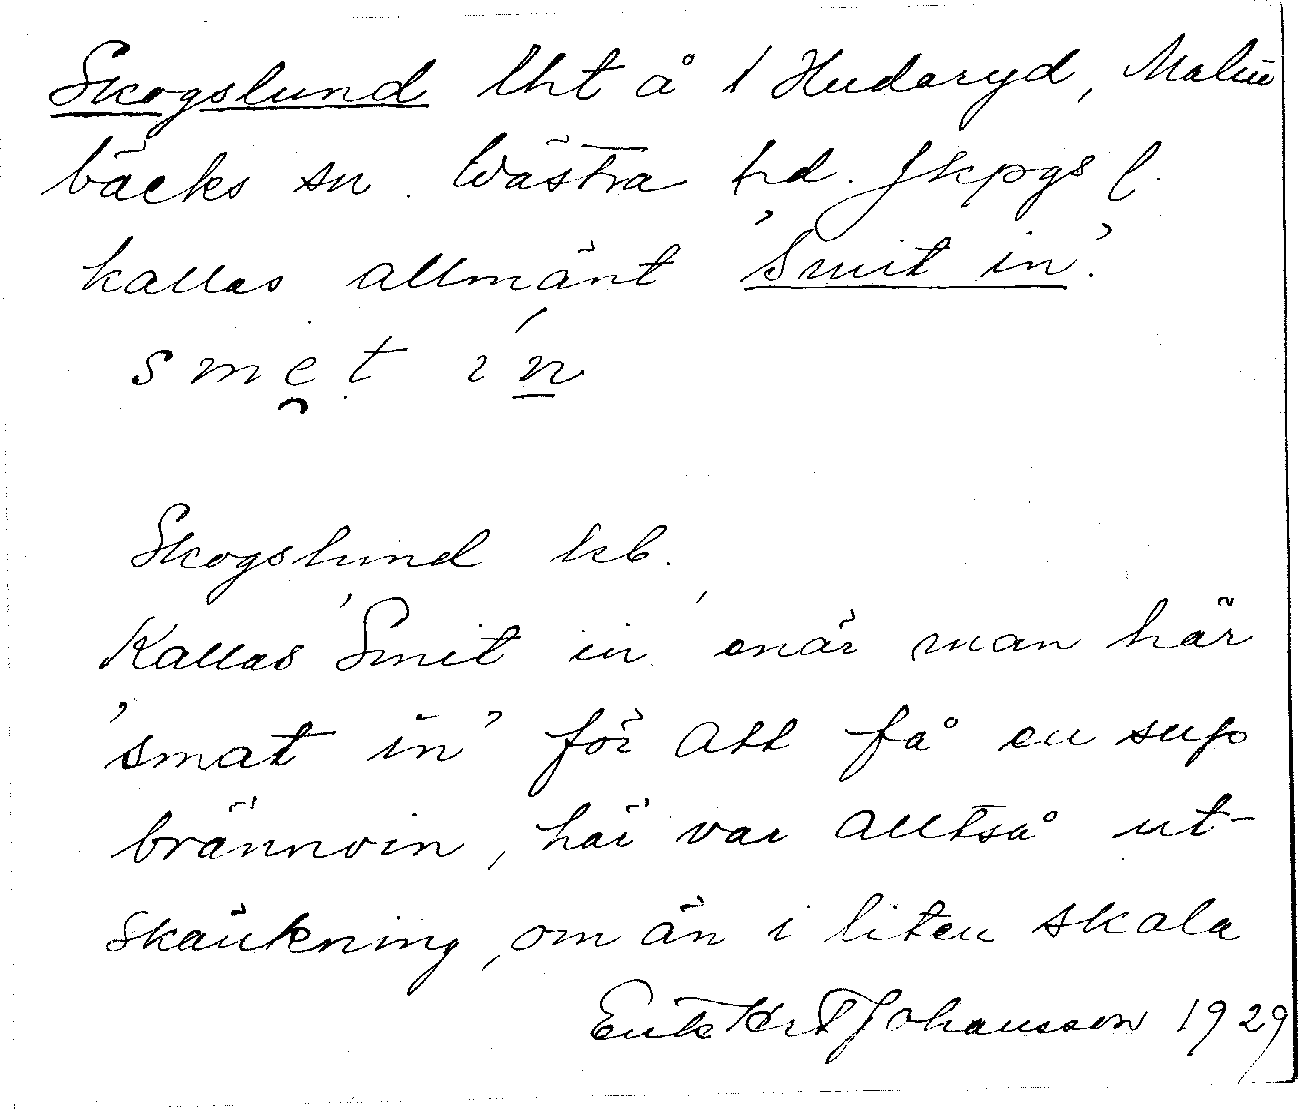 Skogslund lht å 1 Hudaryd, Malm
bäcks sn. Västra hd. Jkpgs l.
kallas allmänt 'Smit in'.
smet in

Skogslund lkl.
Kallas 'Smit in' enär man här
'smat in' för att få en sup
brännvin, här var alltså ut-
skänkning, om än i liten skala
Enl. Johansson 1929